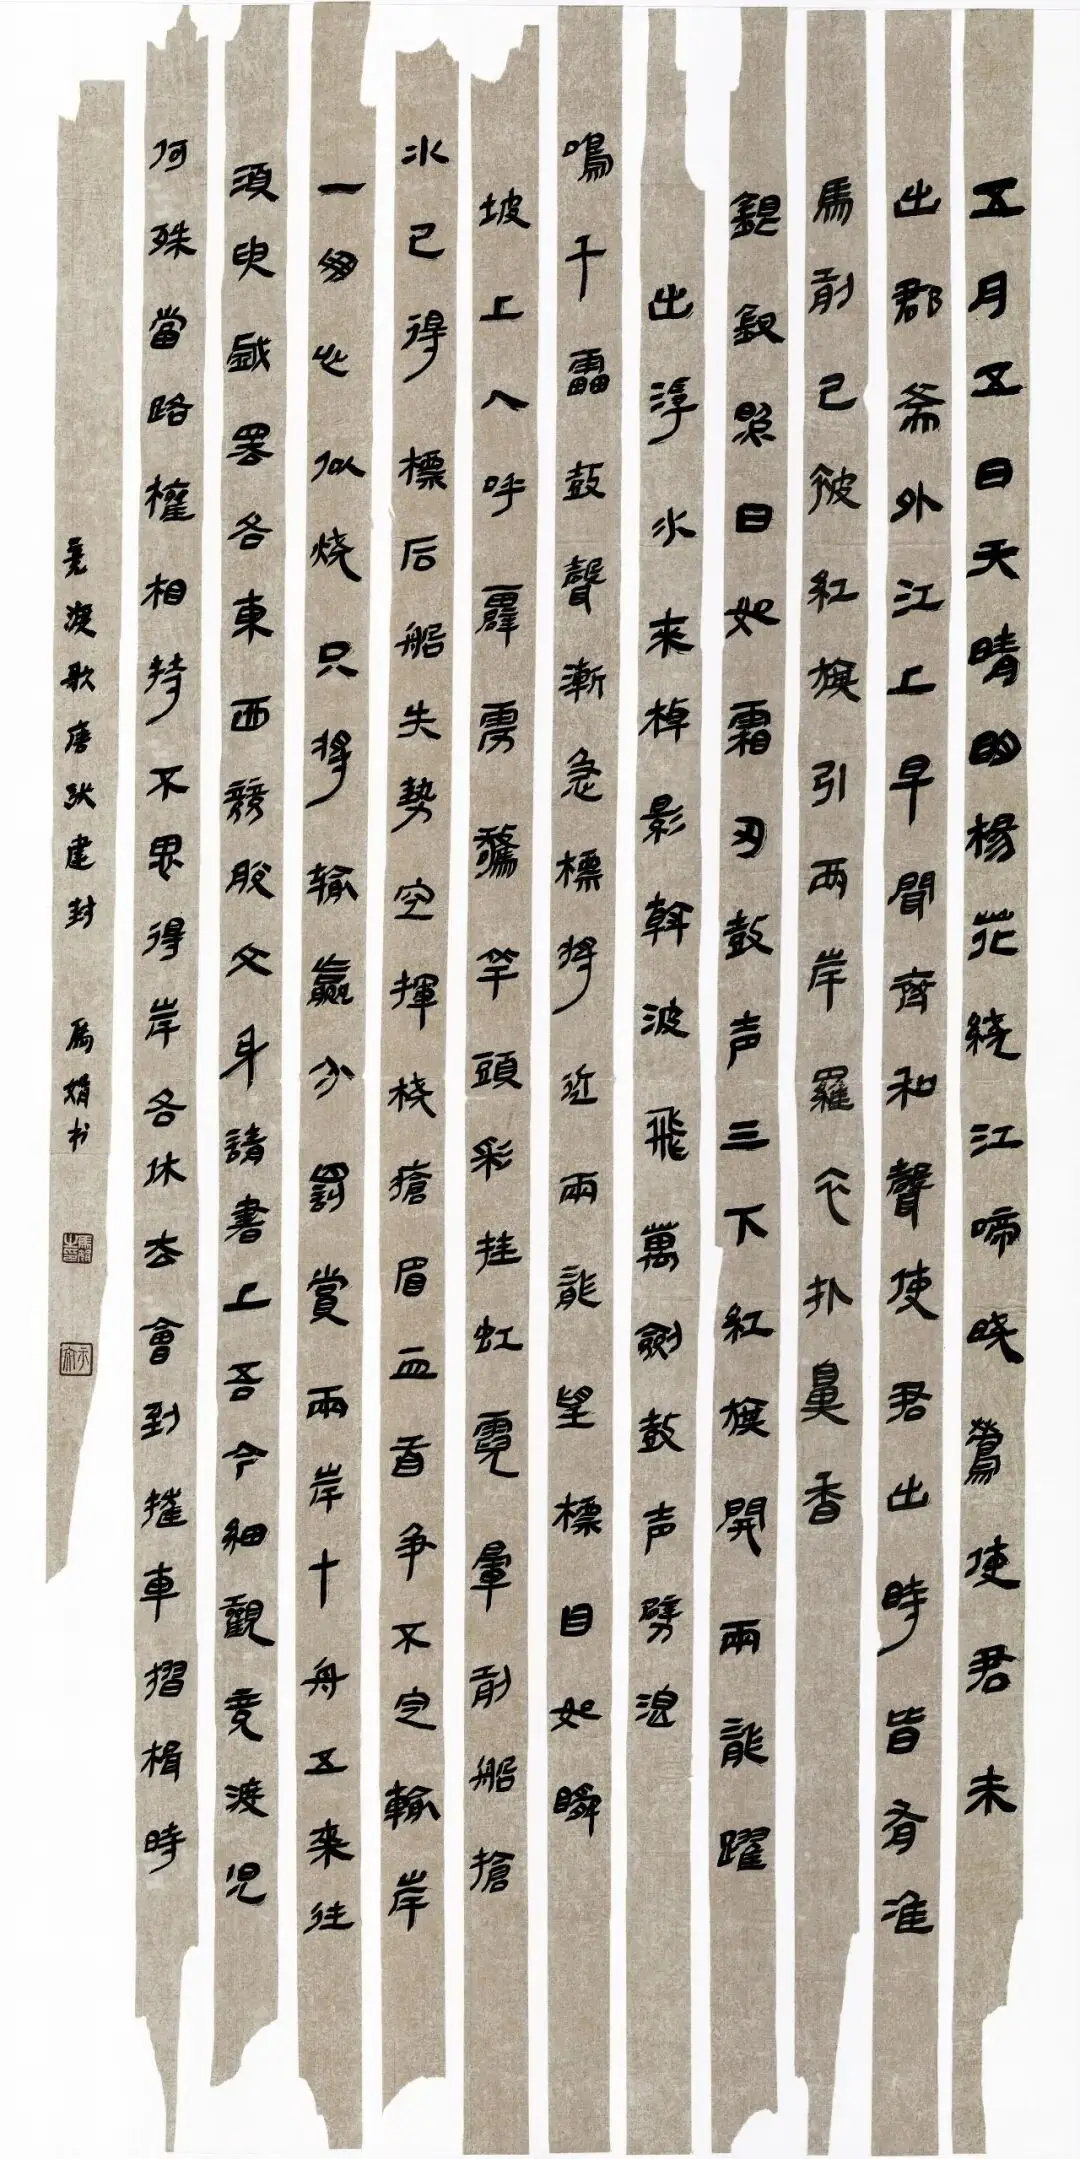 五月五日天晴明楊花繞江啼曉鶯使君未
出郡齋外江上早聞齊和聲使君出時皆有准
馬前已被紅旗引兩岸羅衣扑鼻香
銀釵照日如霜刃鼓声三下紅旗開兩龍躍
出浮水來棹影斡波飛萬劍鼓声劈浪
鳴千雷鼓聲漸急標將近兩龍望標目如瞬
坡上人呼霹靂驚竿頭彩挂虹霓暈前船搶
水已得標后船失勢空揮橈瘡眉血首争不定輸岸
一朋心似烧只將輸贏分罰賞兩岸十舟五來往
須臾戲罢各東西競脫文身請書上吾今細觀竞渡児
何殊當路權相持不思得岸各休去會到摧車摺楫時
竞渡歌唐张建封 馬娟书